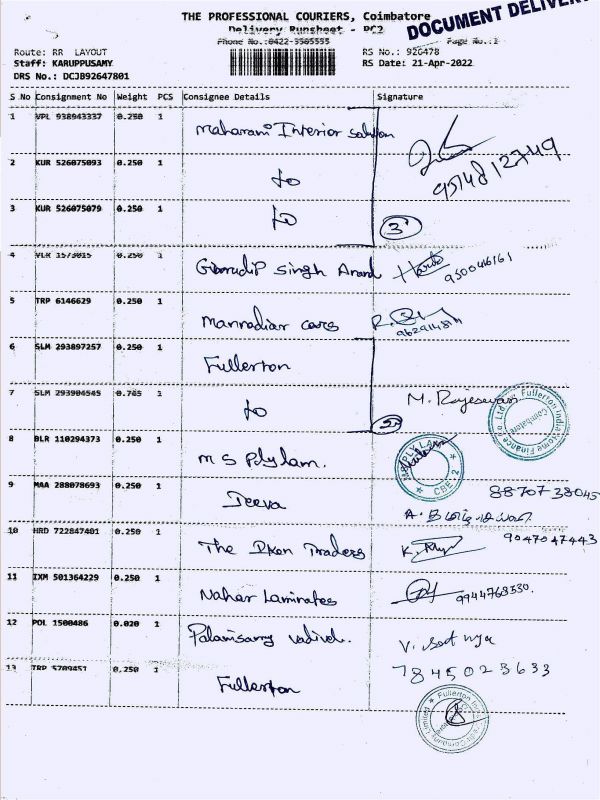 THE PROFESSIONAL COURIERS, Coimbatore
DOCUMENT DELIVERY
Delivery Runsheet - PC2
Phone No.:0422-3505555 Page No.:1
Route: RR LAYOUT RS No.: 926478
Staff: KARUPPUSAMY RS Date: 21-Apr-2022
DRS No.: DCJB92647801
S No Consignment No Weight PCS Consignee Details Signature
1 VPL 938943337 0.250 1 Maharani Interior
2 KUR 526075093 0.250 1 to
3 KUR 526075079 0.250 1 to 3
4 VLR 1573015 0.250 1 Singh Anand
5 TRP 6146629 0.250 1 Mannadiar cars
6 SLM 293897257 0.250 1 Fullerton
7 SLM 293904545 0.745 1 to M. Rajeswari
Fullerton India Home Finance Co Ltd Coimbatore
8 BLR 110294373 0.250 1 M S Plylam.
CBE-2
9 MAA 288078693 0.250 1 Jeeva 8870738045
10 HRD 722847401 0.250 1 The Traders 9047047443
11 IXM 501364229 0.250 1 Nahar Laminates 9944763530.
12 POL 1500486 0.020 1 Palanisamy vadivel.
7845023633
13 TRP 5709451 0.250 1 Fullerton